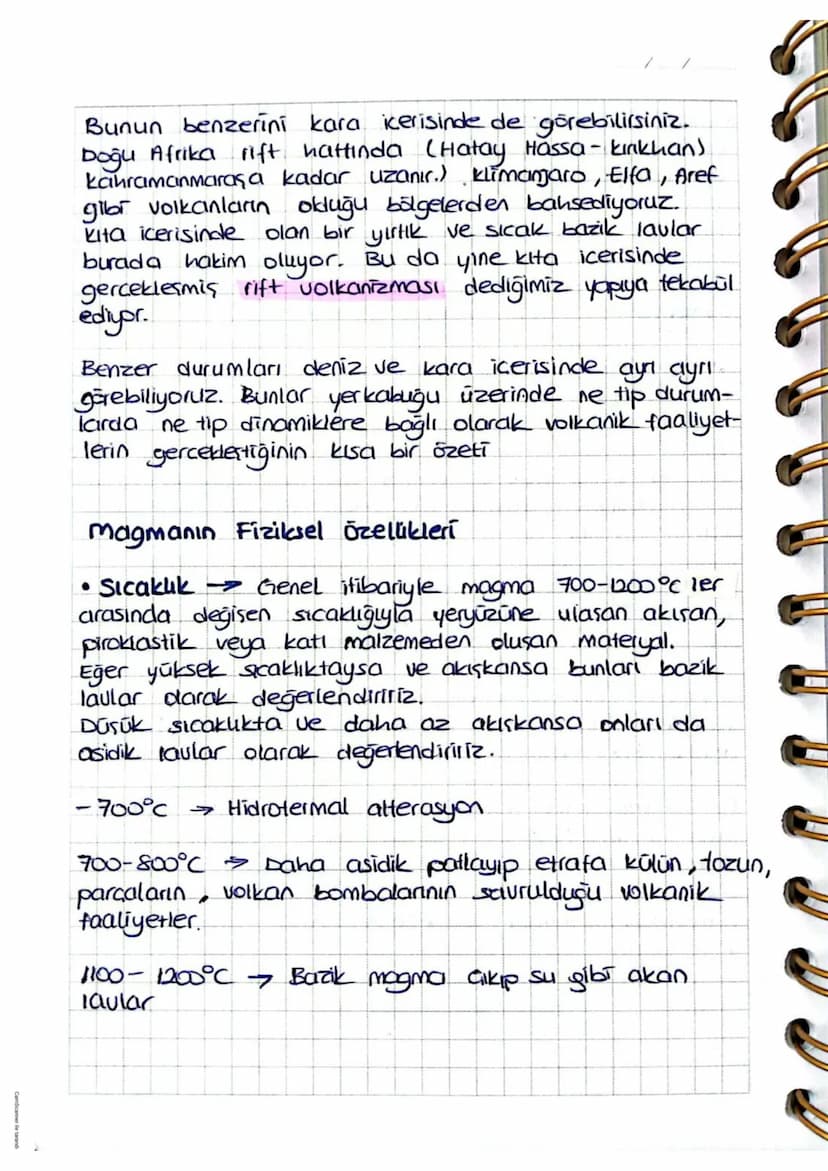 / /
Bunun benzerini kara icerisinde de görebilirsiniz.
Doğu Afrika rift hattında (Hatay Hassa-kırıkhan)
kahramanmaraşa kadar uzanır.) klimanjaro, Elfa, Aref
gibi volkanların olduğu bölgelerden bahsediyoruz.
kıta icerisinde olan bir yırtık ve sıcak bazik lavlar
burada hakim oluyor. Bu da yine kıta icerisinde
gerceklesmiş rift volkanizması dediğimiz yapıya tekabül
ediyor.
Benzer durumları deniz ve kara icerisinde ayrı ayrı
görebiliyoruz. Bunlar yerkabuğu üzerinde ne tip durum-
larda ne tip dinamiklere bağlı olarak volkanik faaliyet-
lerin gerceklestiğinin kısa bir özeti
Magmanın Fiziksel özellikleri
• Sıcaklık → Genel itibariyle magma 700-1200°C ler
arasında değisen sıcaklığıyla yeryüzüne ulasan akısan,
piroklastik veya katı malzemeden olusan materyal.
Eğer yüksek sıcaklıktaysa ve akışkansa bunları bazik
lavlar olarak değerlendiririz.
Düsük sıcaklıkta ve daha az akıskansa onları da
asidik lavlar olarak değerlendiririz.
-700°C → Hidrotermal alterasyon
700-800°C → Daha asidik patlayıp etrafa külün, tozun,
parcaların, volkan bombalarının savrulduğu volkanik
faaliyetler.
1100-1200°C → Bazik magma cıkıp su gibi akan
lavlar
CamScanner ile tarandı